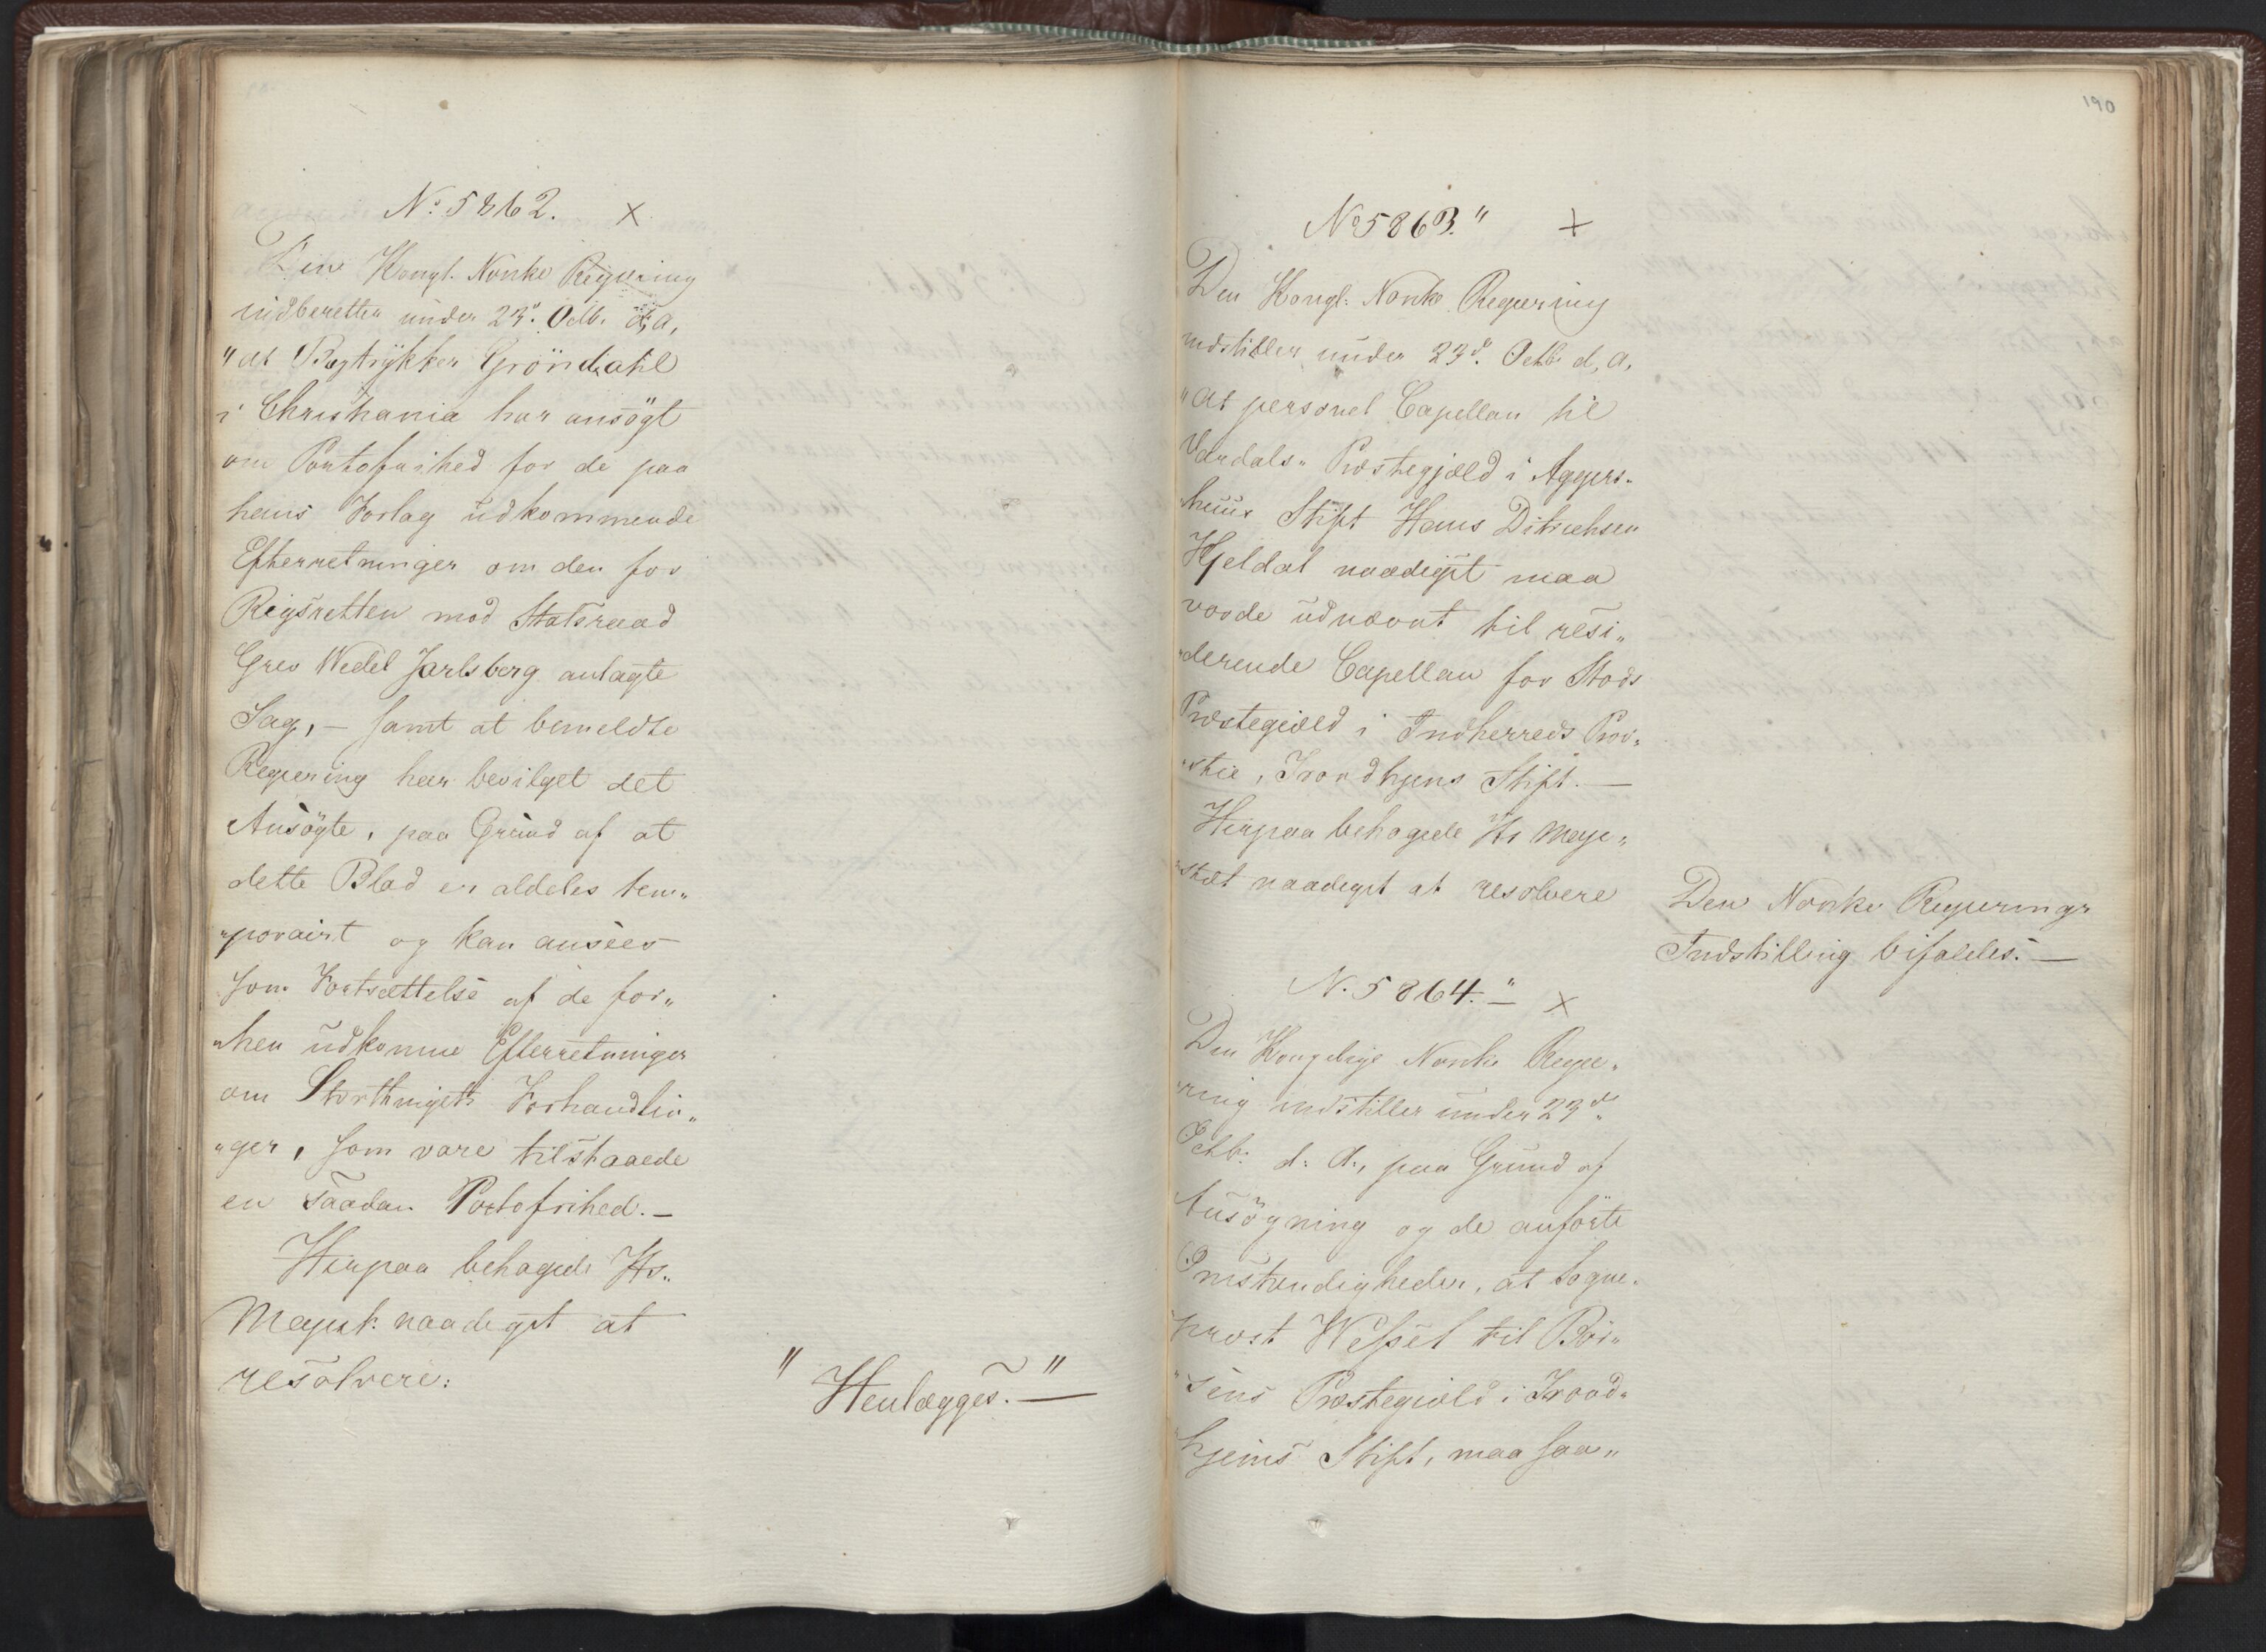 No 5862. X
Den Kongl. Norske Regiering
indberetter under 23d. Octb. d. a,
"at Bogtrykker Gröndahl
i Christiania har ansögt
om Portofrihed for de paa
hans Forlag udkommende
Efterretninger om den for
Rigsretten mod Statsraad
Grev Wedel Jarlsberg anlagte
Sag, – samt at bemeldte
Regiering har bevilget det
Ansögte, paa Grund af at
dette Blad er aldeles tem„
„porairt og kan ansees
som Fortsættelse af de for„
„hen udkomne Efterretninger
om Storthingets Forhandlin„
„ger, som vare tilstaaede
en saadan Portofrihed. –
Hierpaa behagede Hs„
Majest. naadigst at
resolvere:
" Henlægges. – "
190
No 5863." X
Den Kongl. Norske Regiering
indstiller under 23d. Octb. d, a,
"at personel Capellan til
Vardals„ Præstegjæld i Aggers„
huus Stift Hans Ditrichsen
Hjeldal naadigst maa
vorde udnævnt til resi„
„derende Capellan for Stods
Præstegiæld i Indherreds Prov„
„stie, Trondhjens Stift. –
Hierpaa behagede Hs Maje„
„stæt naadigst at resolvere
Den Norske Regierings
Indstilling bifaldes. –
N. 5864." – X
Den Kongelige Norske Regie„
„ring indstiller under 23de„
Octb. d. A., paa Grund af
Ansögning og de anförte
Omstændigheder, at Sogne„
prost Wessel til Bör„
„sens Præstegiæld i Trond„
hjems Stift, maa saa„